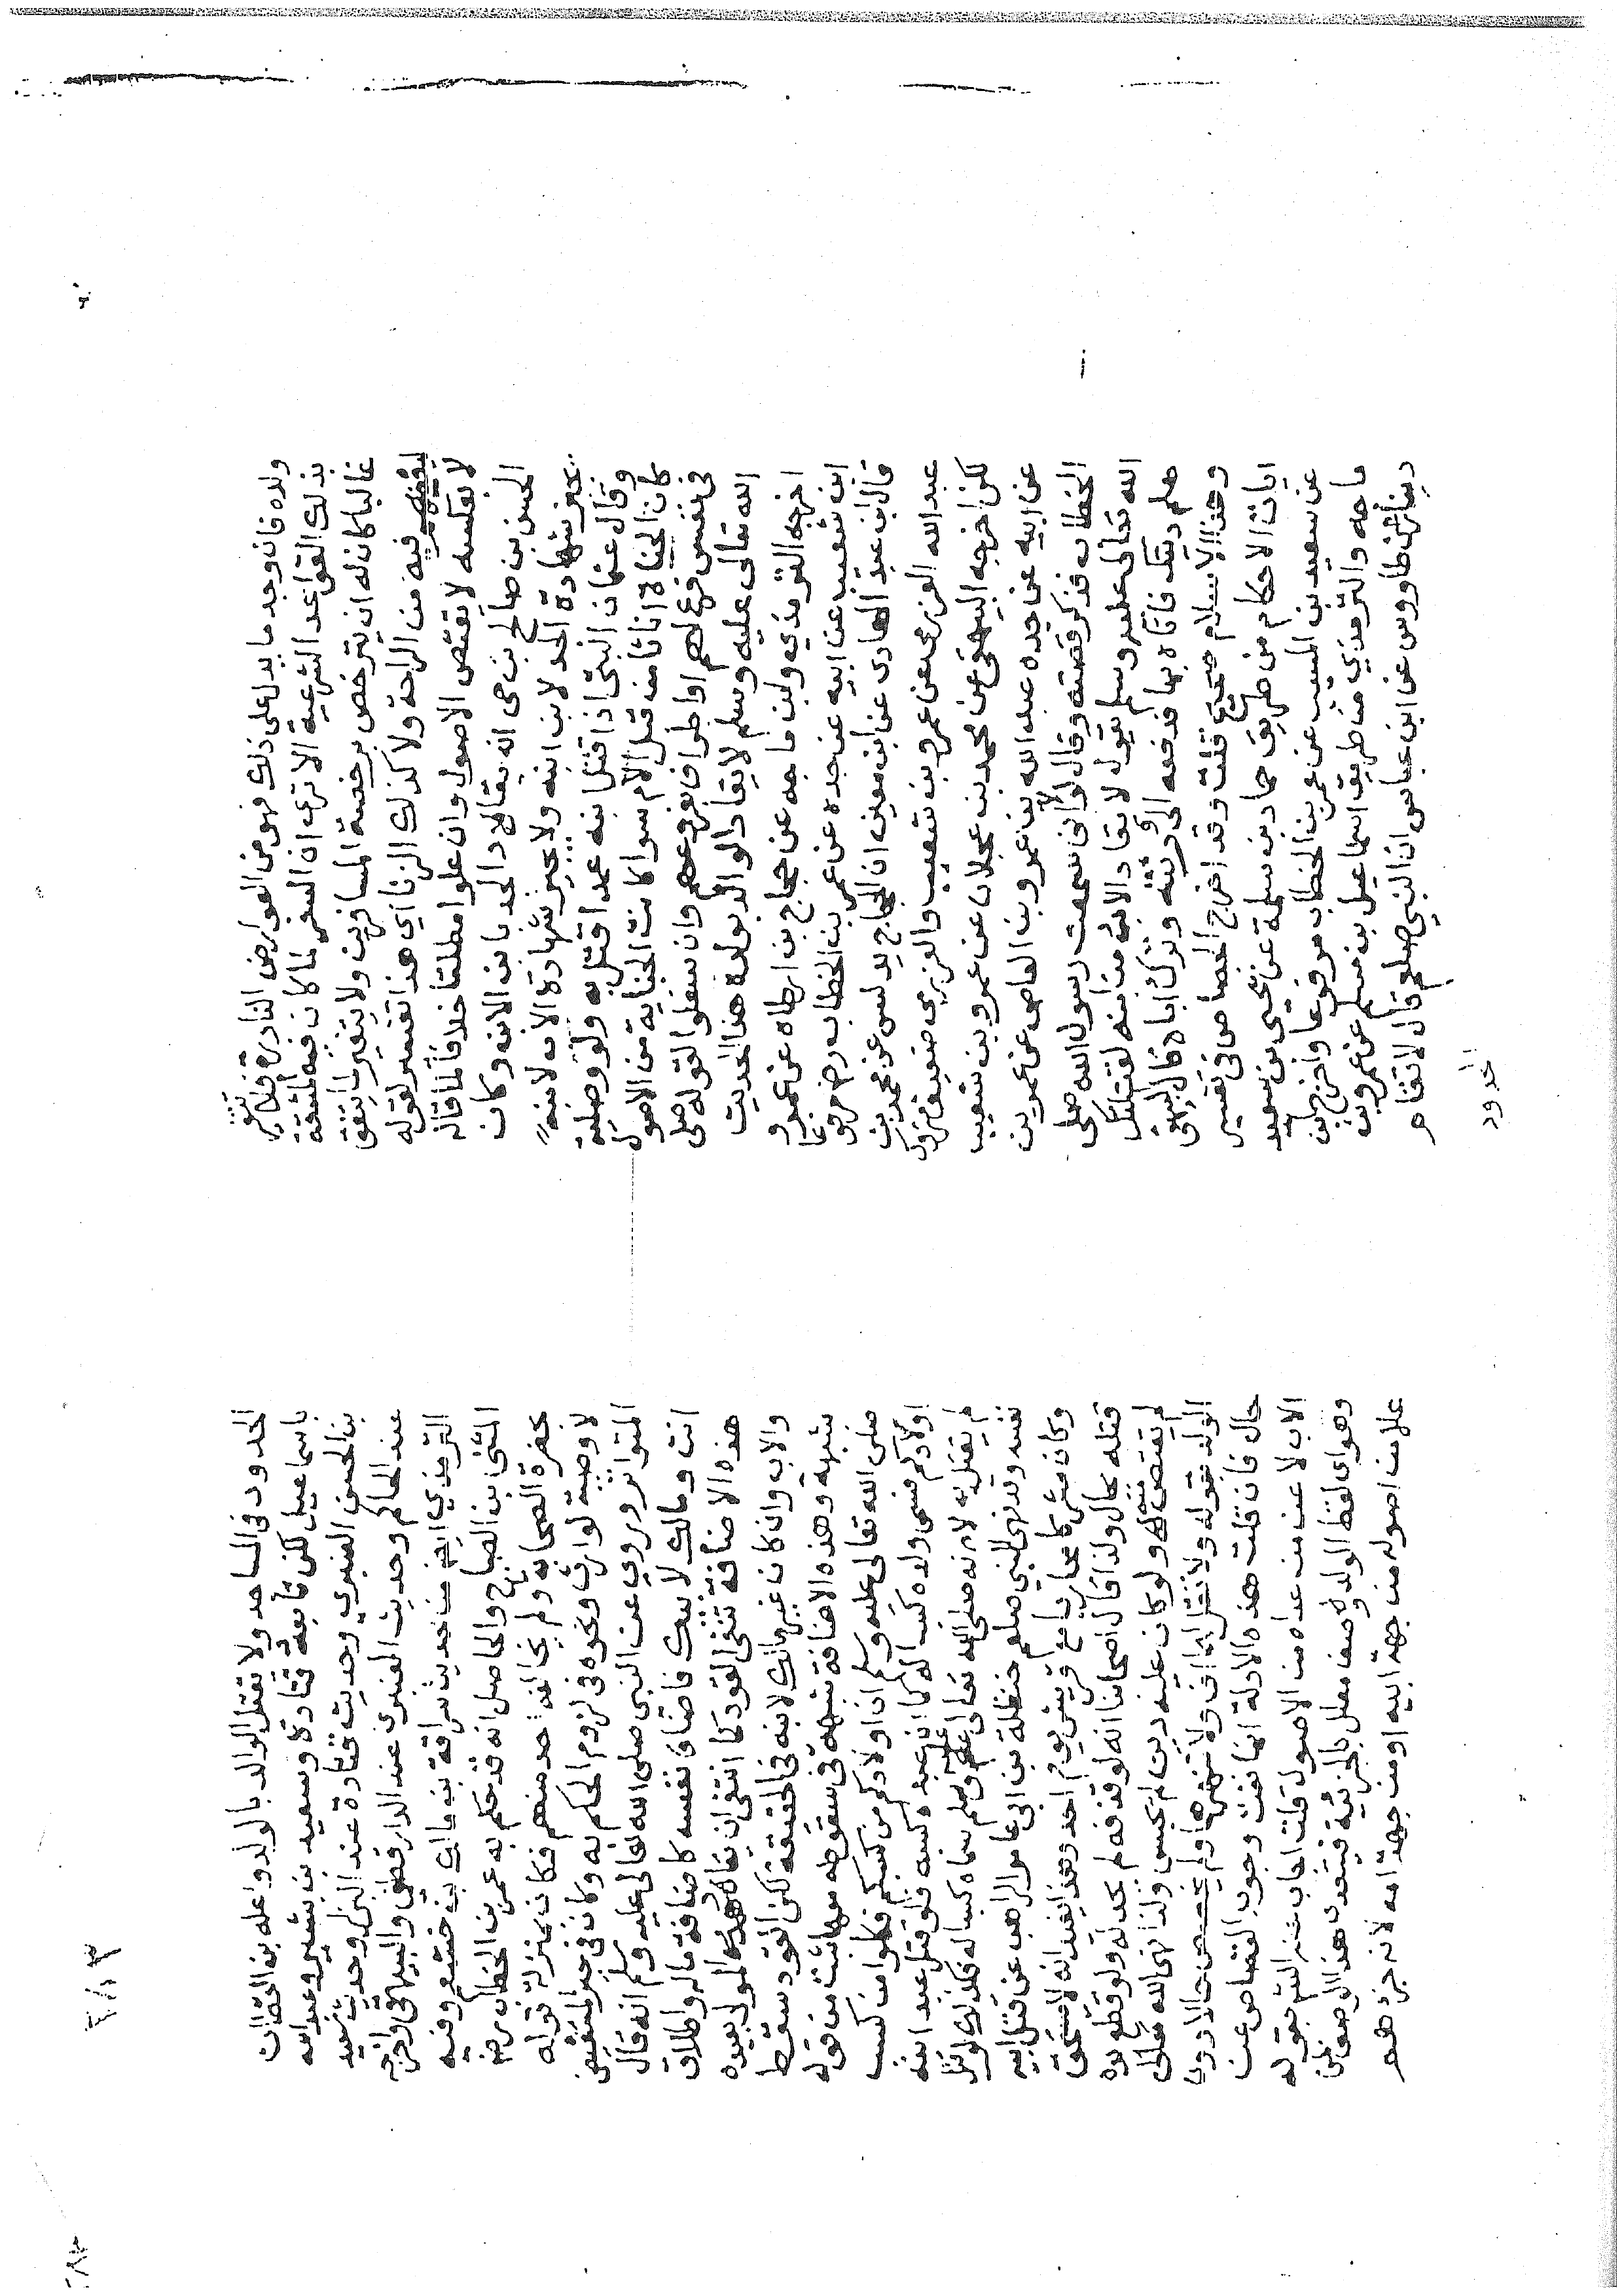 ولده فانه وجد ما يدل على ذلك فهو من العوارض النادرة فلا تتغير
بذلك القواعد الشرعية الا ترى ان السفر لما كان فيه المشقة
غالبا كان له ان يترخص برخصة المسافرين ولا يتغير ما يتفق
فيه من الراحة ولا كذلك الزنا اي هذا تفسير لقوله
لا بعكسه لا تقتص الاصول وان علوا مطلقا خلافا لما قاله
الحسن بن صالح بن حي انه يقاد الجد بابن الابن وكان
يجيز شهادة الجد لابن ابنه ولا يجيز شهادة الاب لابنه
وقال عثمان البتي اذا قتل ابنه عمدا قتل به ولو وصلية
كان الجناة اناثا منه قبل الام سوا كانت الجناية من الاصول
في نفس فروعهم او اطراف فروعهم وان سفلوا لقوله صلى
الله تعالى عليه وسلم لا يقاد الوالد بولده هذا الحديث
اخرجه الترمذي وابن ماجه عن حجاج بن ارطاه عن عمرو
ابن شعيب عن ابيه عن جده عن عمر بن الخطاب رض مرفوعا
قال ابن عبد الهادي عن ابن معين ان الحجاج يدلس عن محمد بن
عبد الله العزرمي عن عمرو بن شعيب والعزرمي ضعيف متروك
لكن اخرجه البيهقي عن محمد بن عجلان عن عمرو بن شعيب
عن ابيه عن جده عبد الله بن عمرو بن العاص عن عمر بن
الخطاب فذكر قصته وقال لولا اني سمعت رسول الله صلى
الله تعالى عليه وسلم يقول لا يقاد الاب من ابنه لقتلتك
هلم ديتك فاتاه بها فدفعه الى ورثته وترك اباه قال البيهقي
وهذا الاسلام صحيح قلت وقد اخرج الخصاص في تفسير
ايات الاحكام من طريق حماد بن سلمة عن يحيى بن سعيد
عن سعيد بن المسيب عن عمر بن الخطاب مرفوعا واخرج ابن
ماجه والترمذي من طريق اسماعيل بن مسلم عن عمرو بن
دينار عن طاووس عن ابن عباس ان النبي صلعم قال لا تقام
الحدود
الحدود في المساجد ولا تقتل الوالد بالولد واعله بن القطان
باسماعيل لكن تابعه قتادة وسعيد بن بشير وعبد الله
بن الحسن العنبري وحديث قتادة عند البزار وحديث سعيد
عند الحاكم وحديث العنبري عند الدارقطني والبيهقي واخرج
الترمذي ايضا من حديث سراقة بن مالك بن جعشم وفيه
المثنى ابن الصباح والحاصل انه قد حكم به عمر بن الخطاب رض
بحضرة الصحابه ولم يخالفه احد منهم فكان بمنزلة قوله
لا وصية لوارث ونحوه في لزوم الحكم به وكان في حيز المستفيض
المتواتر وروي عن النبي صلى الله تعالى عليه وسلم انه قال
انت ومالك لابيك فاضاف نفسه كاضافة ماله واطلاق
هذه الاضافة تنفي القود كما انتفى ان يقاد المولى بعبده
والاب وان كان غير مالك لابنه في الحقيقه لكن القود سقط
بشبهة وهذه الاضافة شبهة في سقوطه مما ثبت من قوله
صلى الله تعالى عليه وسلم ان اولادكم من كسبكم فكلوا من كسب
اولادكم فسمى ولده كسبا له كما ان عبده كسبه فلو قتل عبد ابنه
لم يقتل به لانه صلى الله تعالى عليه وسلم سماه كسبا له فكذلك لو قتل
نفسه وقد نهى النبي صلعم حنظلة بن ابي عامر الراهب عن قتل ابيه
وكان مشركا محاربا مع قريش يوم احد وهذا يفيد انه لا يستحق
قتله بحال ولذا قال اصحابنا انه لو قذفه لم يحد له ولو قطع يده
لم يقتص منه ولو كان عليه دين لم يحبس ولذا نهى الله تعالى
الولد بقوله ولا تقل لهما اف ولا تنهرهما ولم يخصص حالا دون
حال فان قلت هذه الادلة انما نفت وجوب القصاص عن
الاب لا عن من عداه من الاصول قلت اجاب عنه الشم بقوله
وهو اي لفظ الولد وصف معلل بالجزئية فيتعدى هذا الوصف الى من
علا من اصوله من جهة ابيه او من جهة امه لانه جزءهم
٢٨٣